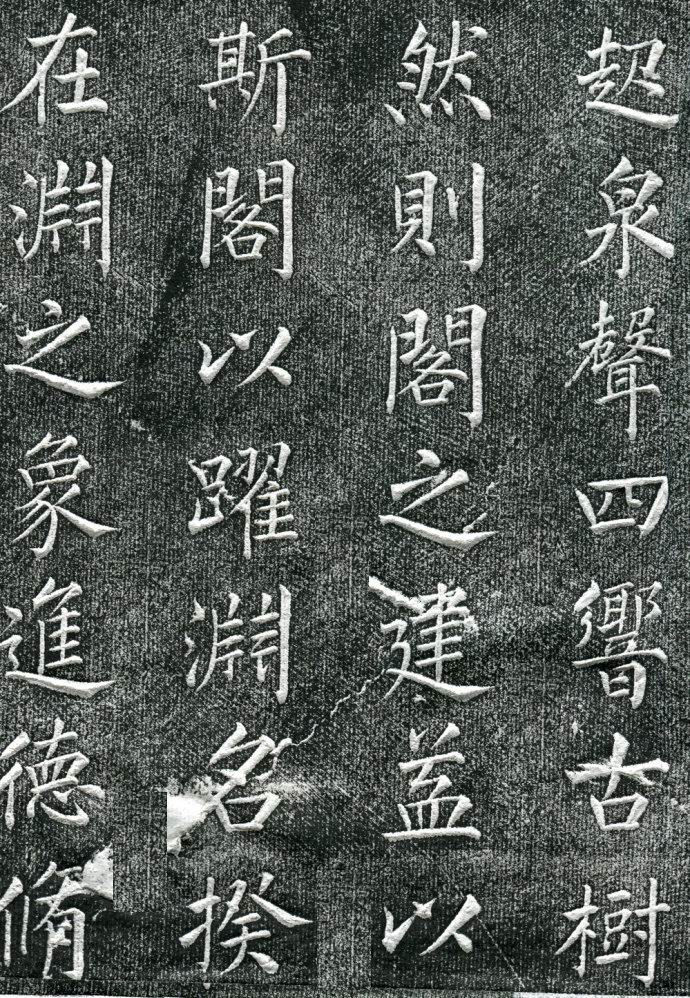 起泉聲四響古樹
然則閣之建葢以
斯閣以躍淵名揆
在淵之象進德脩